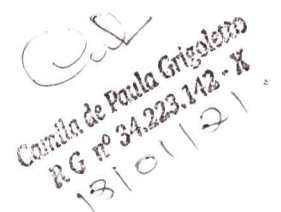 Camila de Paula Grigoletto
RG nº 34.223.142-X
13/01/21.